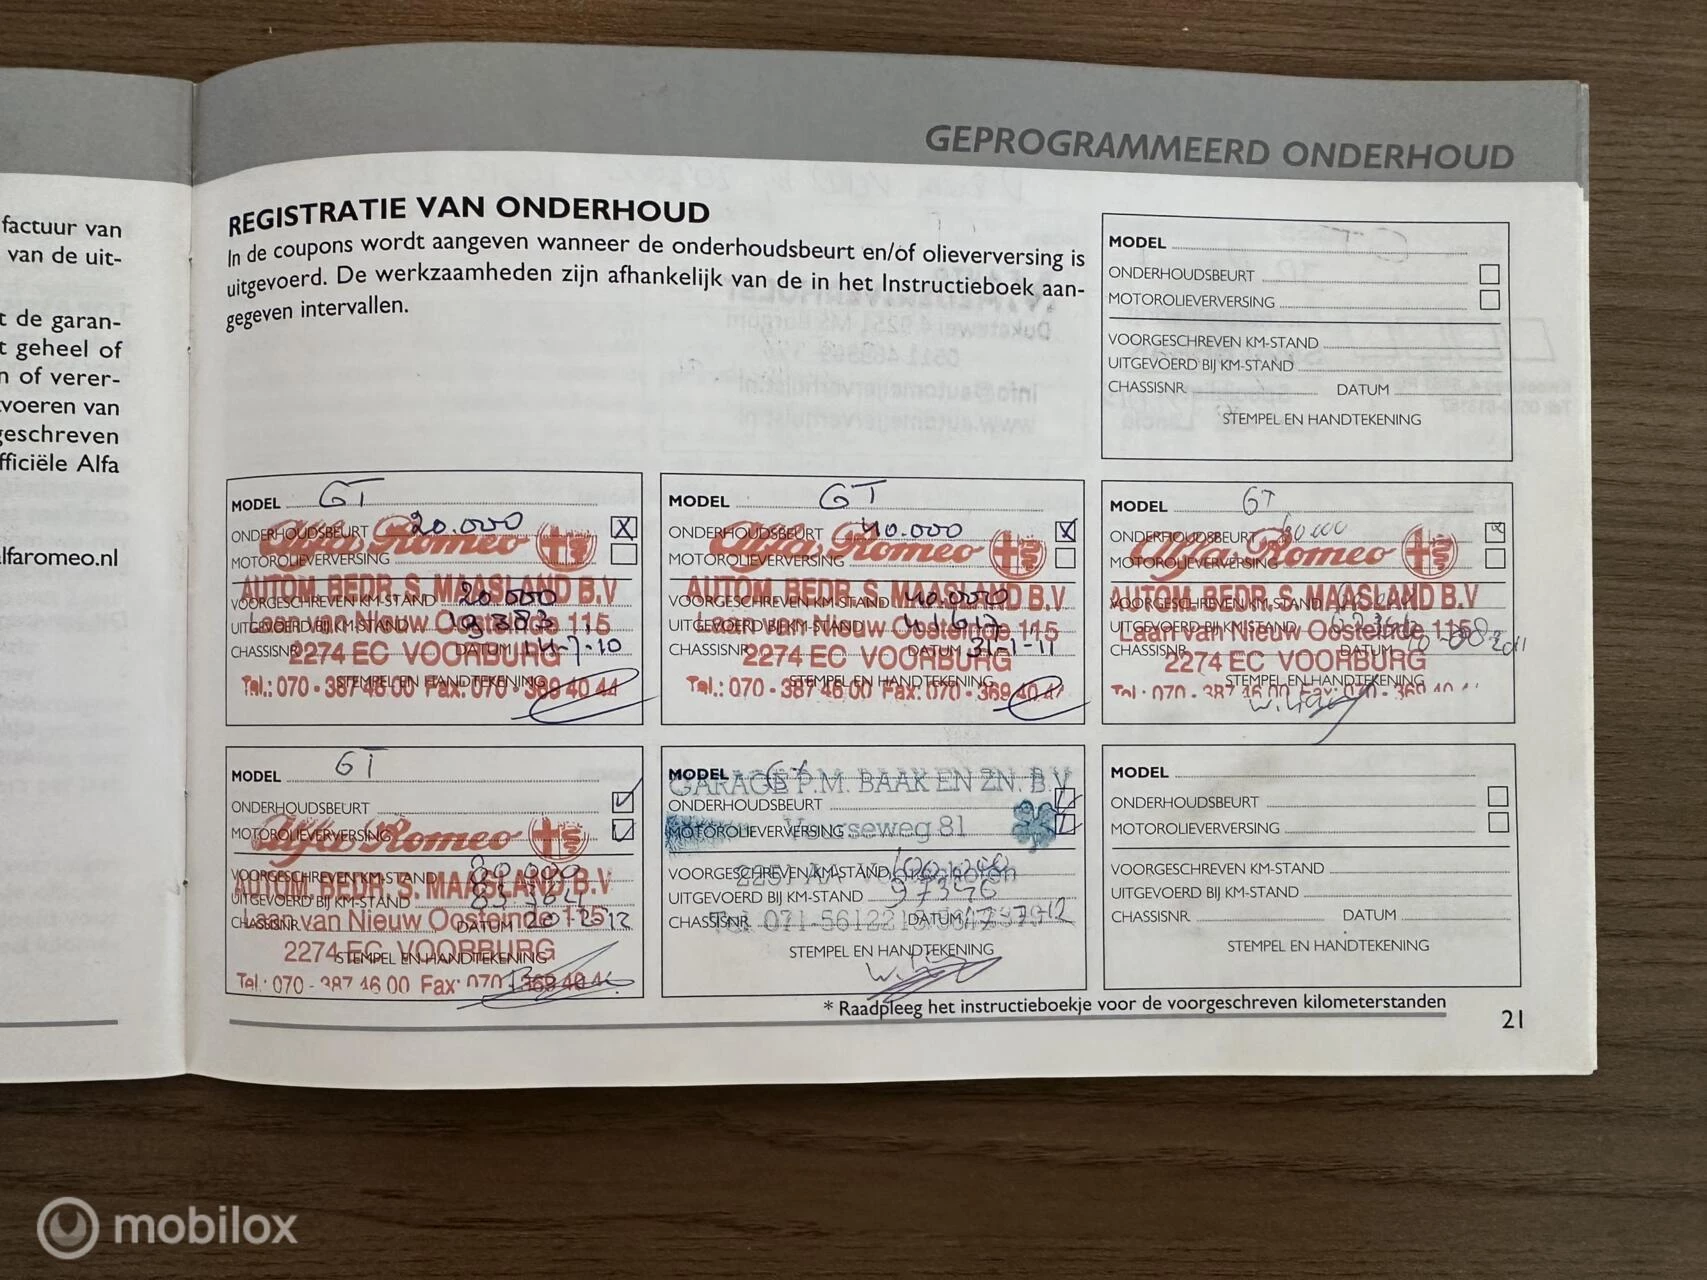 factuur van
van de uit-
t de garan-
t geheel of
n of verer-
voeren van
geschreven
fficiële Alfa
lfaromeo.nl
GEPROGRAMMEERD ONDERHOUD
REGISTRATIE VAN ONDERHOUD
In de coupons wordt aangeven wanneer de onderhoudsbeurt en/of olieverversing is
uitgevoerd. De werkzaamheden zijn afhankelijk van de in het Instructieboek aan-
gegeven intervallen.
MODEL
ONDERHOUDSBEURT
MOTOROLIEVERVERSING
VOORGESCHREVEN KM-STAND
UITGEVOERD BIJ KM-STAND
CHASSISNR. DATUM
STEMPEL EN HANDTEKENING
MODEL GT
ONDERHOUDSBEURT 20.000 X
Alfa Romeo
MOTOROLIEVERVERSING
AUTOM. BEDR. S. MAASLAND B.V
VOORGESCHREVEN KM-STAND 20.000
UITGEVOERD BIJ KM-STAND 19383
Laan van Nieuw Oosteinde 115
CHASSISNR. DATUM 14-7-10
2274 EC VOORBURG
STEMPEL EN HANDTEKENING
Tel.: 070 - 387 46 00 Fax: 070 - 369 40 44
MODEL GT
ONDERHOUDSBEURT 40.000 X
Alfa Romeo
MOTOROLIEVERVERSING
AUTOM. BEDR. S. MAASLAND B.V
VOORGESCHREVEN KM-STAND 40.000
UITGEVOERD BIJ KM-STAND 41617
Laan van Nieuw Oosteinde 115
CHASSISNR. DATUM 31-1-11
2274 EC VOORBURG
STEMPEL EN HANDTEKENING
Tel.: 070 - 387 46 00 Fax: 070 - 369 40 44
MODEL GT
ONDERHOUDSBEURT 60000 X
Alfa Romeo
MOTOROLIEVERVERSING
AUTOM. BEDR. S. MAASLAND B.V
VOORGESCHREVEN KM-STAND
UITGEVOERD BIJ KM-STAND
Laan van Nieuw Oosteinde 115
CHASSISNR. DATUM 2011
2274 EC VOORBURG
STEMPEL EN HANDTEKENING
Tel.: 070 - 387 46 00 Fax: 070 - 369 40
MODEL GT
ONDERHOUDSBEURT
MOTOROLIEVERVERSING
Alfa Romeo
VOORGESCHREVEN KM-STAND 80000
AUTOM. BEDR. S. MAASLAND B.V
UITGEVOERD BIJ KM-STAND
Laan van Nieuw Oosteinde 115
CHASSISNR. DATUM
2274 EC VOORBURG
STEMPEL EN HANDTEKENING
Tel.: 070 - 387 46 00 Fax: 070 - 369 40 44
MODEL GT
GARAGE P.M. BAAK EN ZN. B.V
ONDERHOUDSBEURT
MOTOROLIEVERVERSING
81
VOORGESCHREVEN KM-STAND
2251 AA
UITGEVOERD BIJ KM-STAND 97346
CHASSISNR. DATUM 17-7-12
STEMPEL EN HANDTEKENING
MODEL
ONDERHOUDSBEURT
MOTOROLIEVERVERSING
VOORGESCHREVEN KM-STAND
UITGEVOERD BIJ KM-STAND
CHASSISNR. DATUM
STEMPEL EN HANDTEKENING
* Raadpleeg het instructieboekje voor de voorgeschreven kilometerstanden
21
mobilox